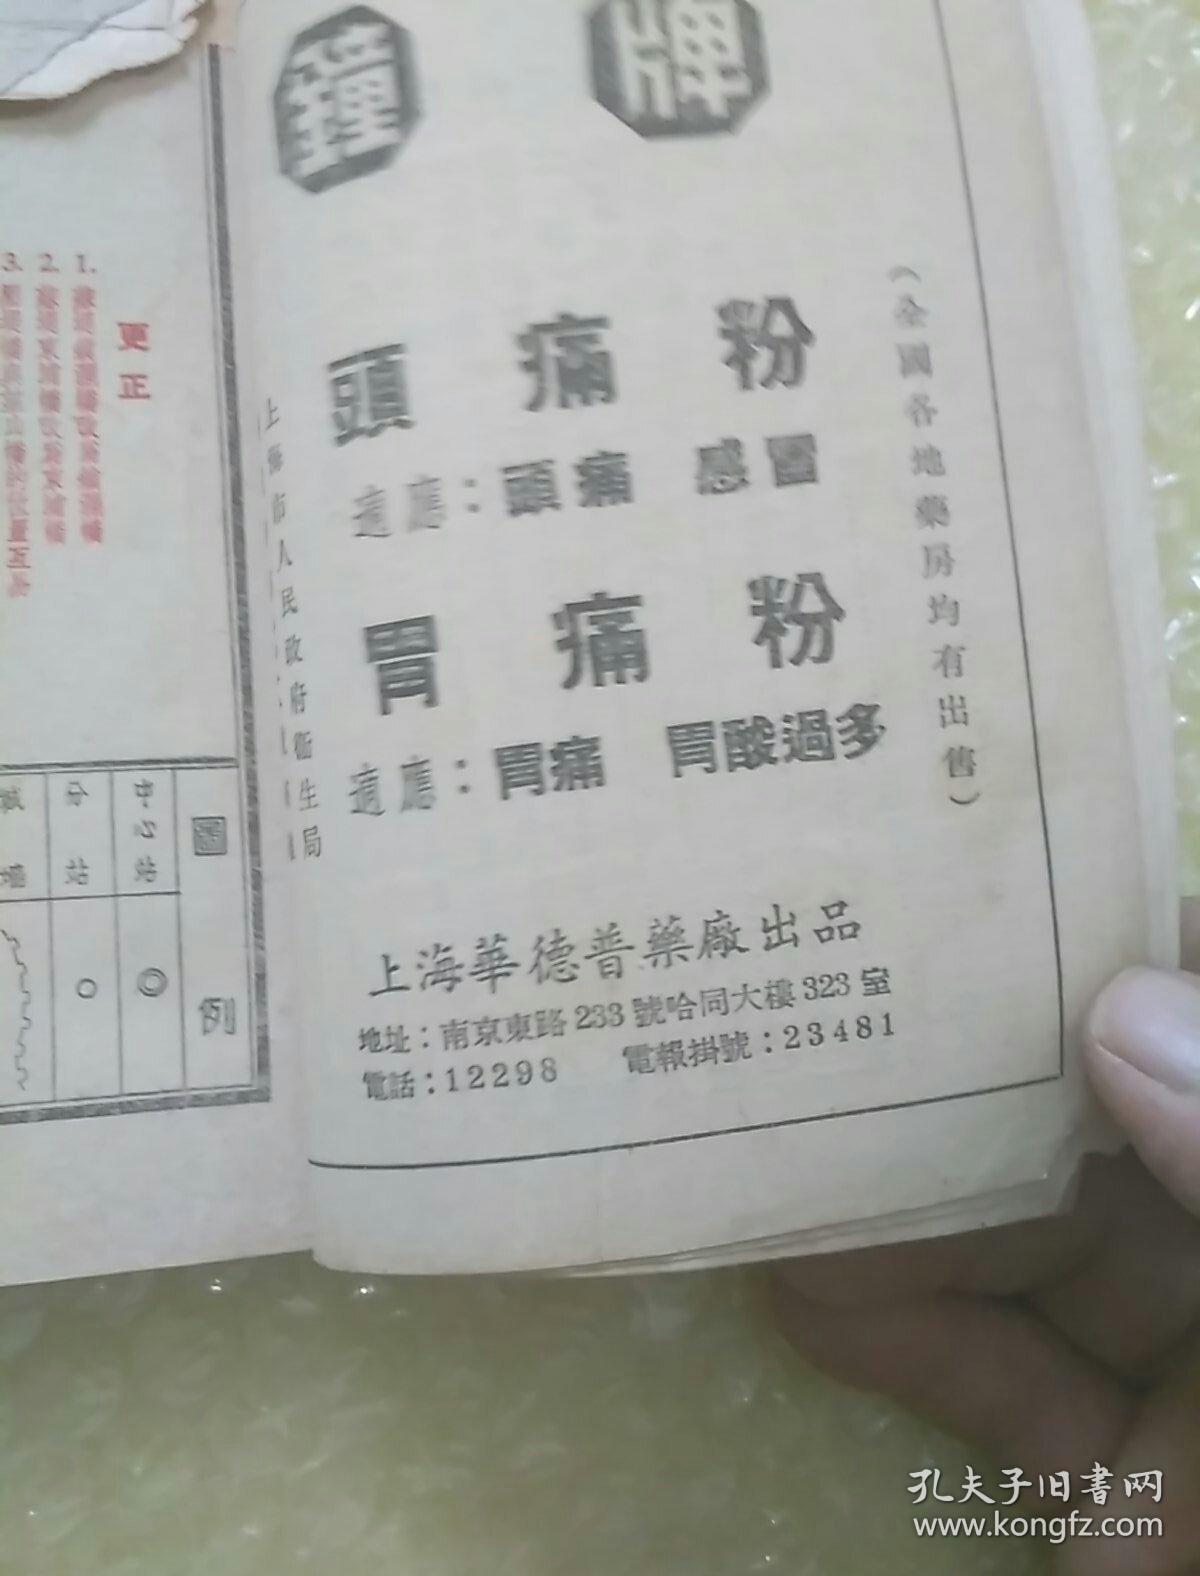 鐘 牌
頭 痛 粉
適應：頭痛 感冒
胃 痛 粉
適應：胃痛 胃酸過多
（全國各地藥房均有出售）
上海市人民政府衛生局
上海華德普藥廠出品
地址：南京東路233號哈同大樓323室
電話：12298 電報掛號：23481
更正
1.
2.
3.
圖例
中心站
分站
孔夫子旧书网
www.kongfz.com